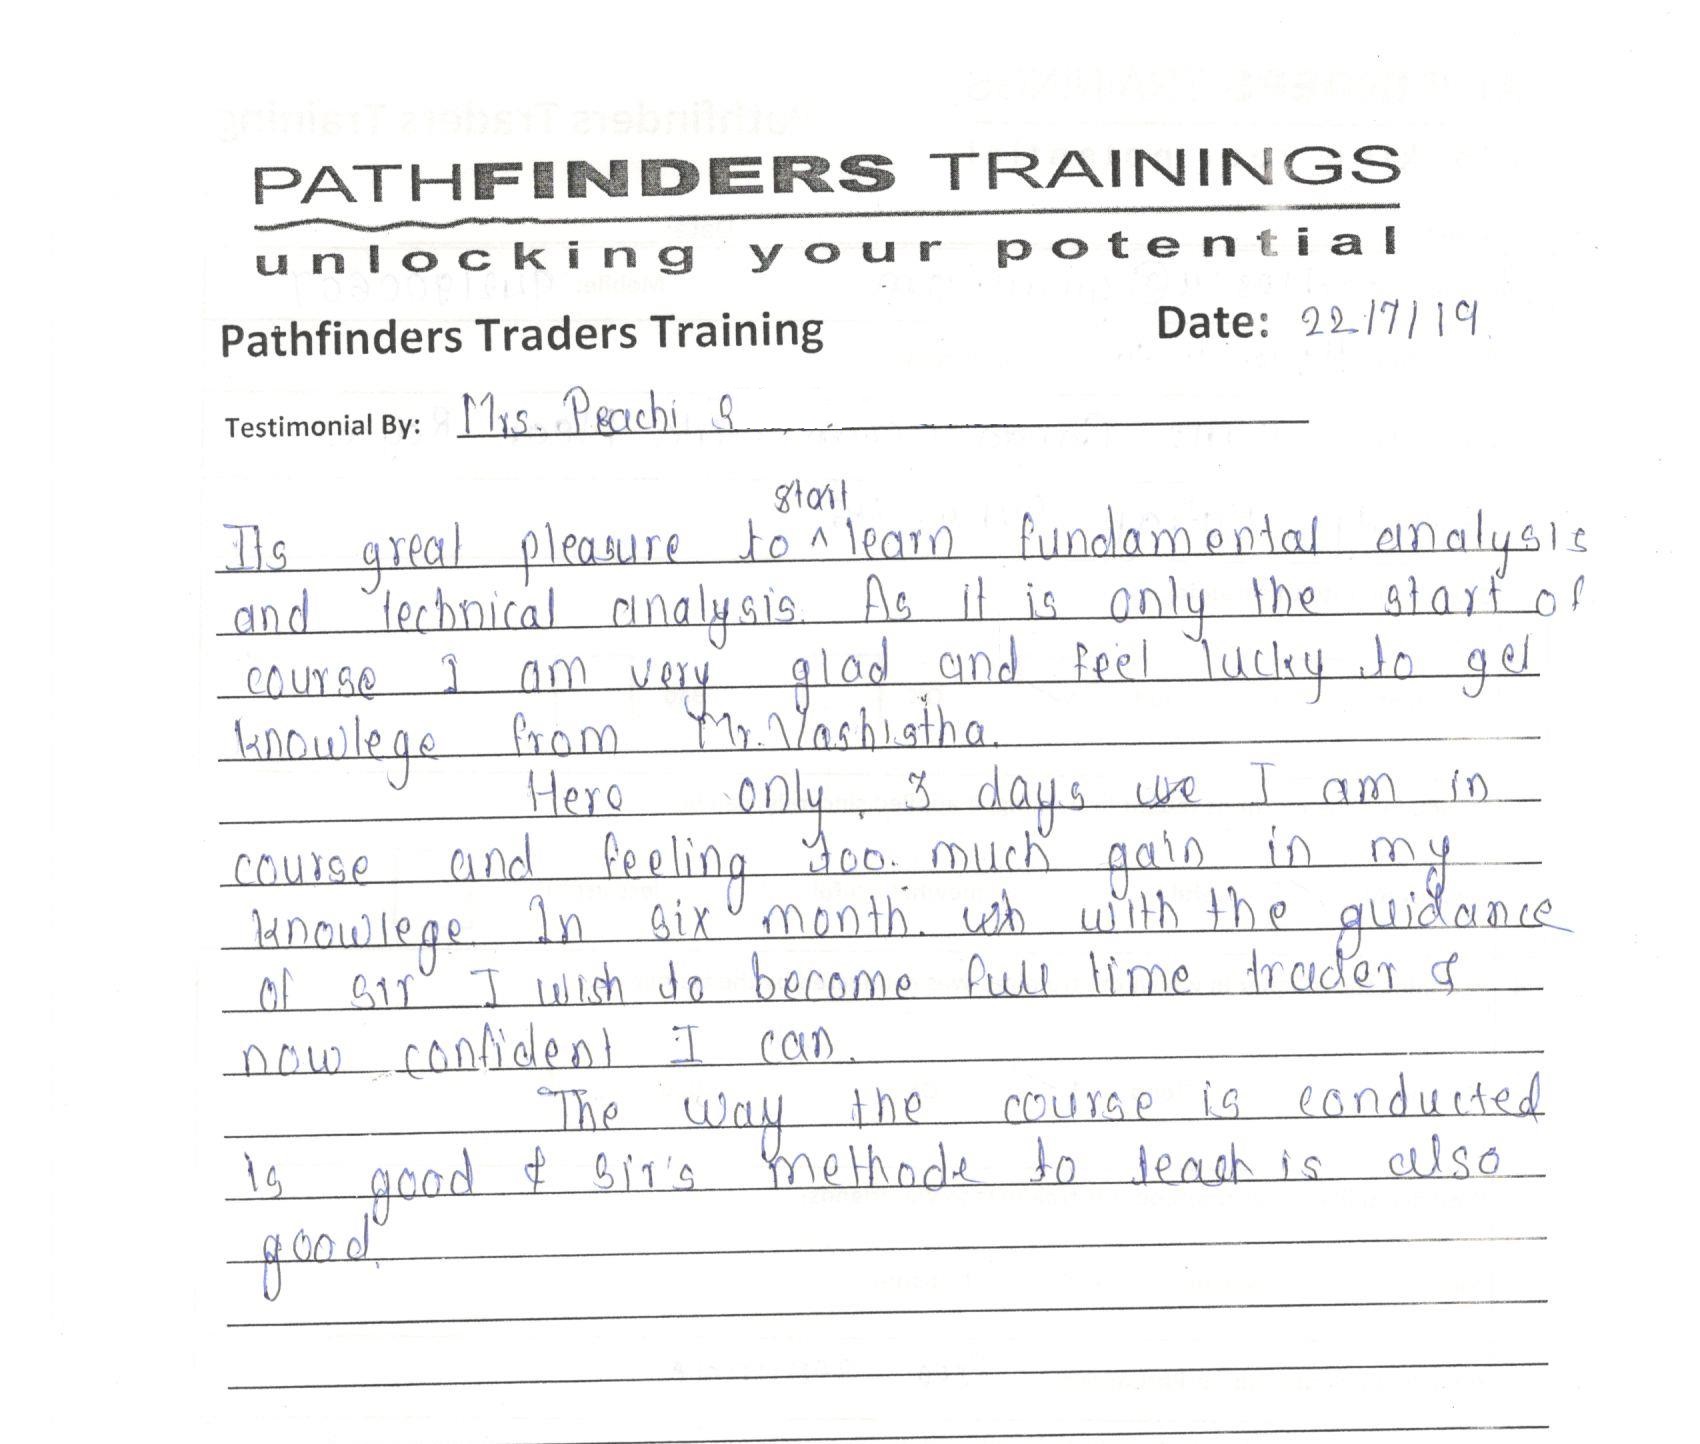 PATHFINDERS TRAININGS
unlocking your potential
Pathfinders Traders Training Date: 22/7/19
Testimonial By: Mrs. Prachi S
start
Its great pleasure to ^ learn fundamental analysis
and technical analysis. As it is only the start of
course I am very glad and feel lucky to get
knowlege from Mr. Vashistha.
Here only 3 days we I am in
course and feeling too much gain in my
knowlege. In six month. with the guidance
of sir I wish to become full time trader &
now confident I can.
The way the course is conducted
is good & sir's methode to teach is also
good.